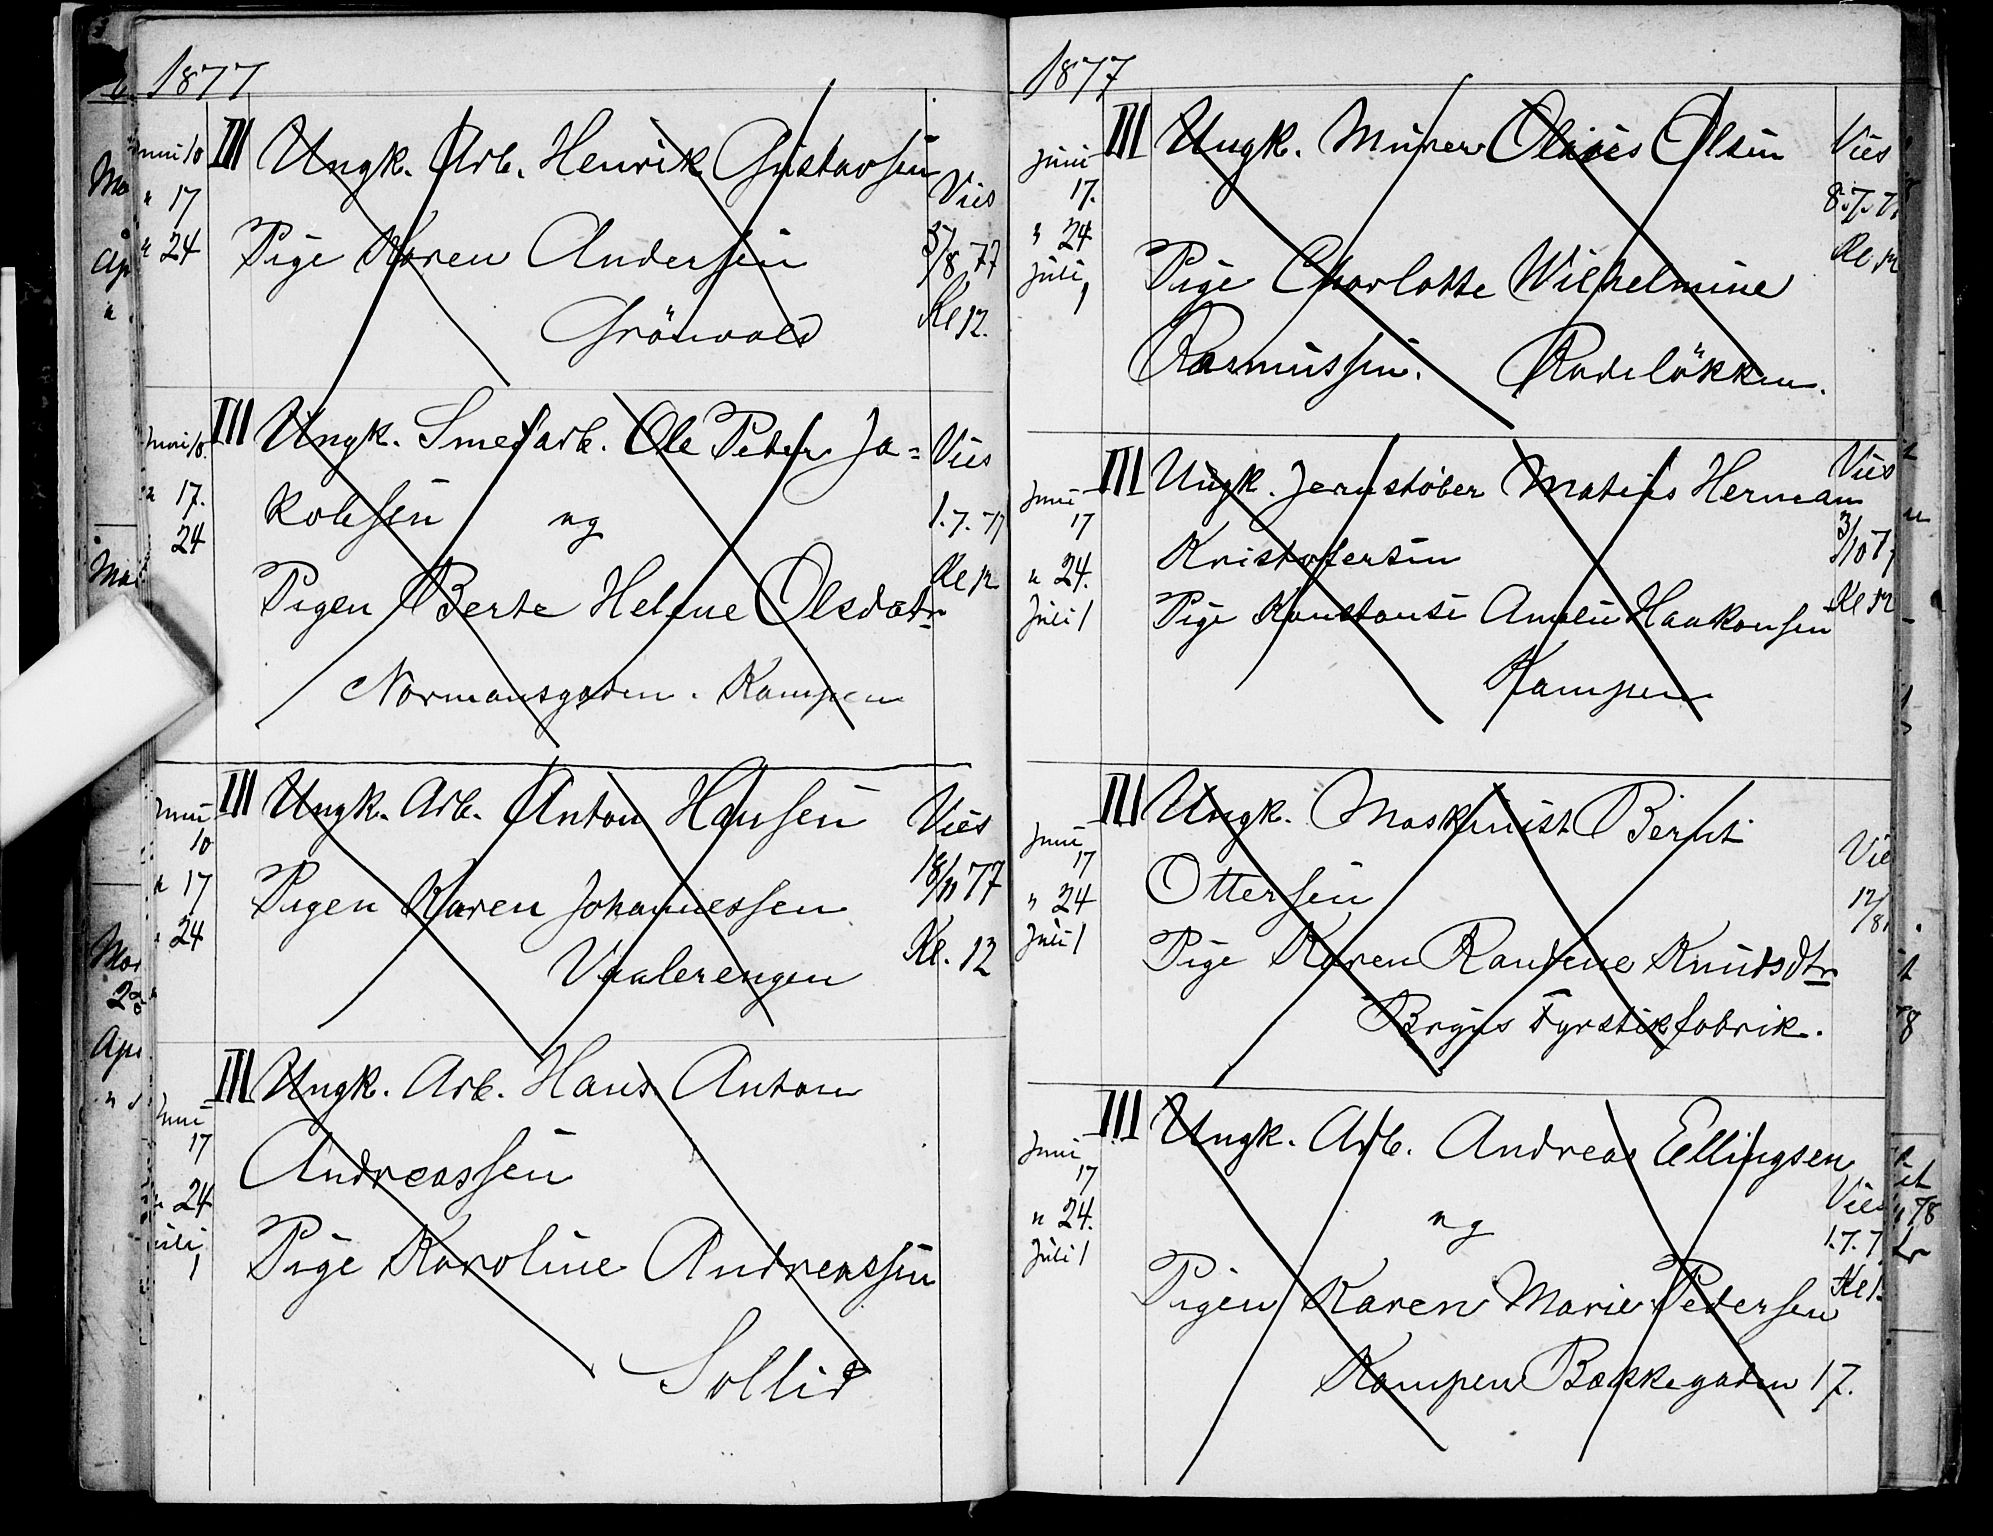 1877
Juni 10 III Ungk. Arb. Henrik Gustavsen
" 17 Vies
" 24 Pige Karen Andersen 5/8 77
Grönvold Kl 12.
Juni 10. III Ungk. Smedarb. Ole Peter Ja= Vies
" 17. kobsen og 1.7.77
24
Pigen Berte Helene Olsdatr Kl 12
Normansgaden. Kampen
Juni 10 III Ungk. Arb. Anton Hansen Vies
" 17 Pigen Karen Johannessen 18/11 77
" 24 Vaalerengen Kl. 12
Juni 17 III Ungk. Arb. Hans Anton
" 24 Andreassen
Juli 1 Pige Karoline Andreassen
Sollid
1877
Juni 17. III Ungk. Murer Olaves Olsen Vies
" 24 8.7.7
Juli 1 Pige Charlotte Wilhelmine Kl 12
Rasmussen. Rodelökken.
Juni 17 III Ungk. Jernstöber Matias Herman Vies
" 24. Kristofersen 3/10 7
Juli 1 Pige Konstanse Amalie Haakonsen Kl 12
Kampen
Juni 17 III Ungk. Maskinist Bernt
" 24 Ottersen 12/8
Juli 1 Pige Karen Randine Knudsdtr
Bryns Fyrstikfabrik.
Juni 17 III Ungk. Arb. Andreas Ellingsen
" 24. og Vies
Juli 1 1.7.7
Pigen Karen Marie Pedersen Kl 1
Kampen Bakkegaden 17.